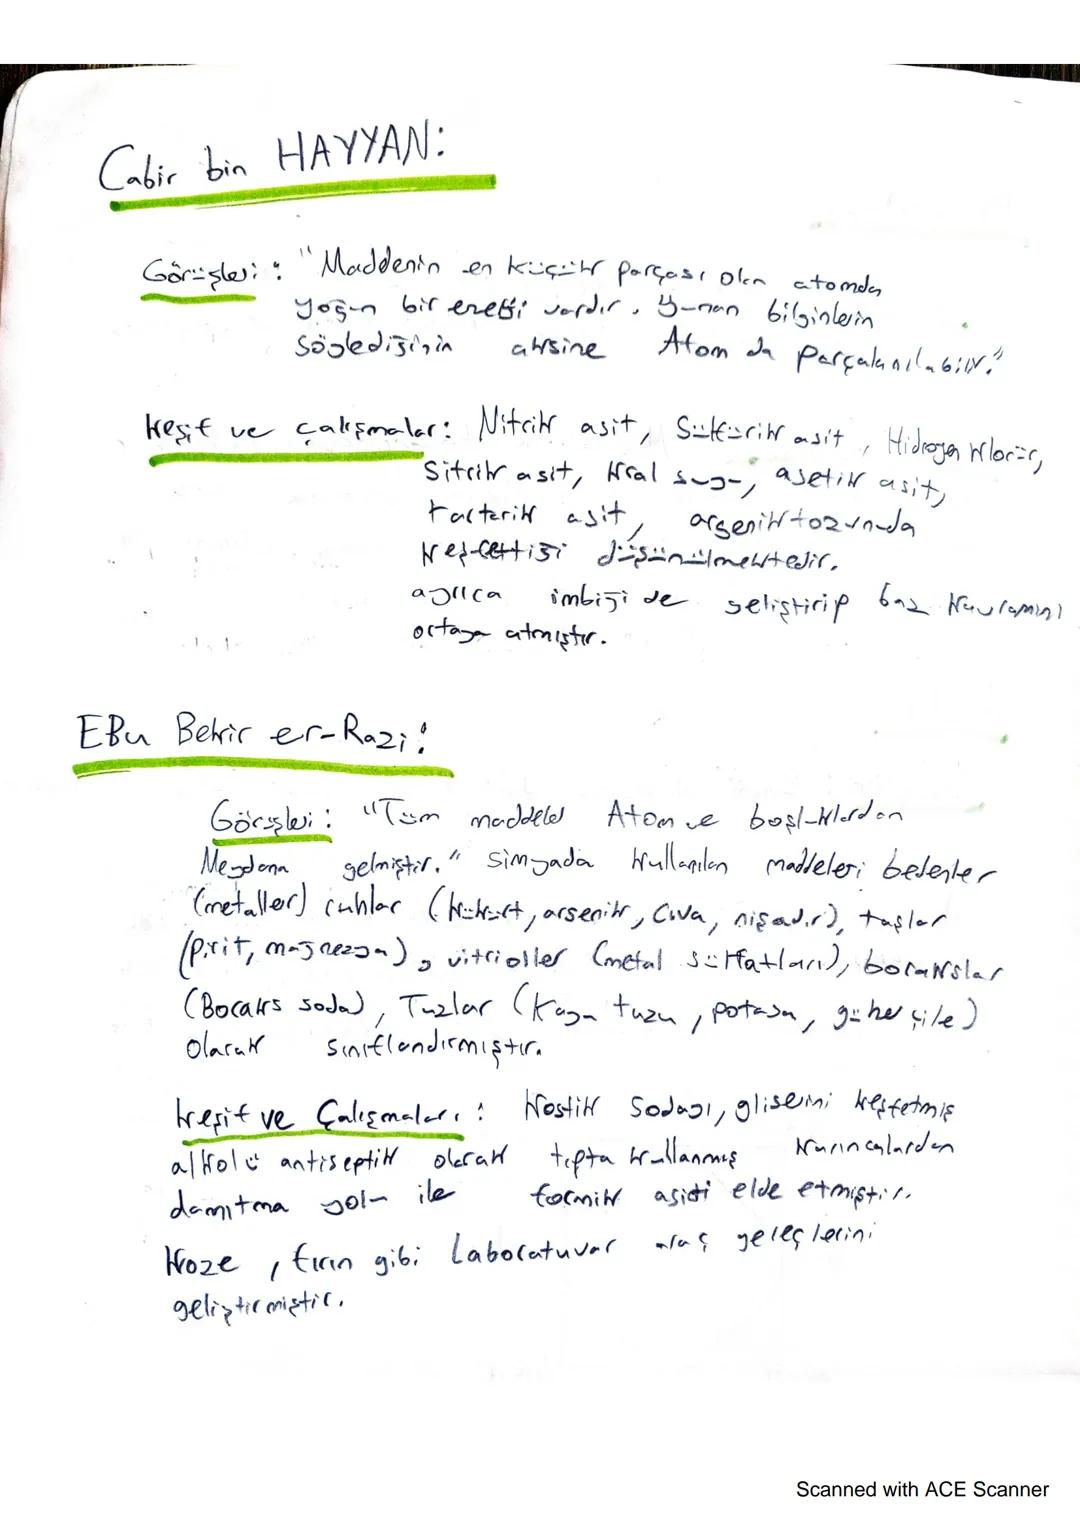 Cabir bin HAYYAN:
Görüşleri : "Maddenin en küçük parçası olan atomda
yoğun bir enerji vardır. Yunan bilginlerin
Söylediğinin aksine Atom da parçalanılabilir."
Keşif ve çalışmalar: Nitrik asit, Sülfürik asit, Hidrojen klorür,
Sitrik asit, Kral suyu, asetik asit,
tarterik asit, arsenik tozunuda
keşfettiği düşünülmektedir.
ayrıca imbiği de geliştirip baz kavramını
ortaya atmıştır.
EBu Bekir er-Razi:
Görüşleri: "Tüm maddeler Atom ve boşluklardan
Meydana gelmiştir." simyada kullanılan maddeleri bedenler
(metaller) ruhlar (kükürt, arsenik, Civa, nişadır), taşlar
(pirit, magnezya), vitrioller (metal sülfatları), borakslar
(Boraks soda), Tuzlar (Kaya tuzu, potasa, güherçile)
Olarak sınıflandırmıştır.
Keşif ve Çalışmaları: Kostik Sodayı, gliserini keşfetmiş
alkolü antiseptik olarak tıpta kullanmış karıncalardan
damıtma yolu ile formik asidi elde etmiştir.
Kroze, fırın gibi Laboratuvar araç gereçlerini
geliştirmiştir.
Scanned with ACE Scanner